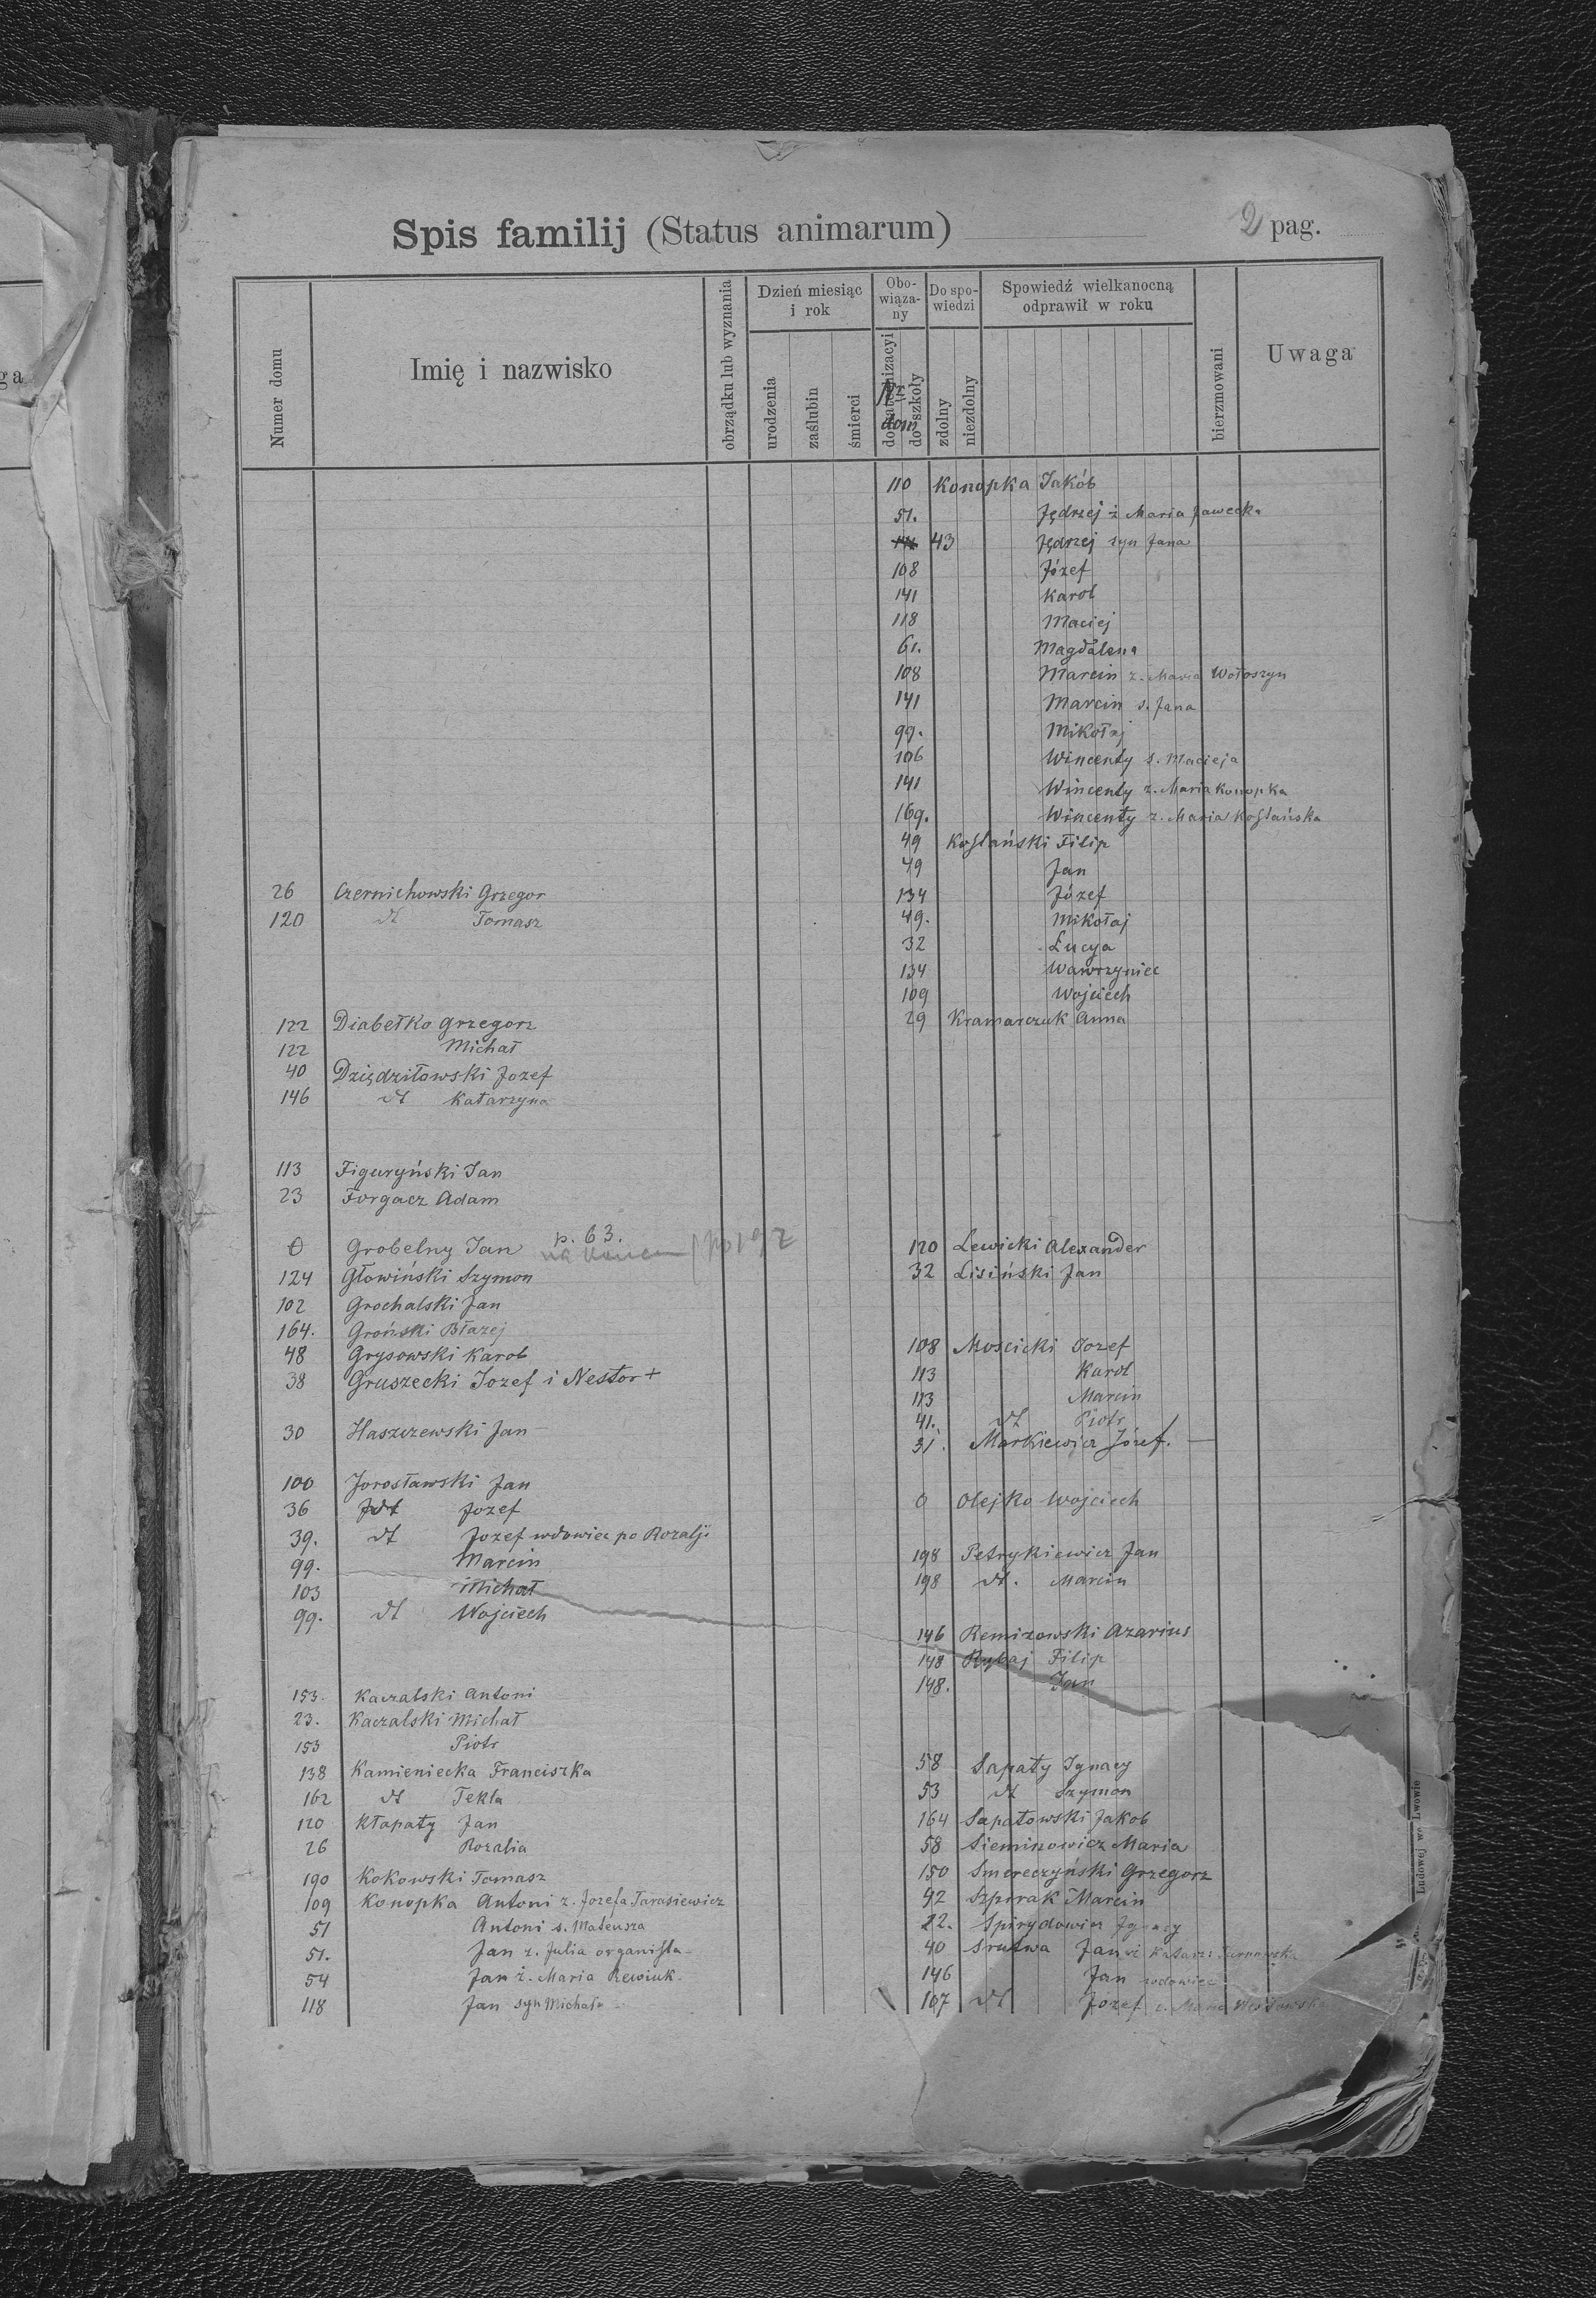 Spis familij (Status animarum)
2 pag.
Numer domu
Imię i nazwisko
obrządku lub wyznania
Dzień miesiąc i rok
urodzenia
zaślubin
śmierci
Obo-wiąza-ny
do katechizacyi
do szkoły
Nr dom
Do spo-wiedzi
zdolny
niezdolny
Spowiedź wielkanocną odprawił w roku
bierzmowani
Uwaga
26 Czernichowski Grzegor
120 dt Tomasz
122 Diabełko Grzegorz
122 Michał
40 Dziędziłowski Jozef
146 dt Katarzyna
113 Figuryński Jan
23 Forgacz Adam
0 Grobelny Jan p. 63.
124 Głowiński Szymon
102 Grochalski Jan
164. Groński Błazej
48 Grysowski Karol
38 Gruszecki Jozef i Nestor +
30 Haszczewski Jan
100 Jorosławski Jan
36 dt Jozef
39. dt Jozef wdowiec po Rozalji
99. Marcin
103 Michał
99. dt Wojciech
153. Kaczalski Antoni
23. Kaczalski Michał
153 Piotr
138 Kamieniecka Franciszka
162 dt Tekla
120 Kłapaty Jan
26 Rozalia
190 Kokowski Tomasz
109 Konopka Antoni z. Jozefa Tarasiewicz
51 Antoni s. Mateusza
51. Jan z. Julia organista
54 Jan ż. Maria Rewiuk.
118 Jan syn Michała
110 Konopka Jakób
51. Jędrzej ż Maria Jawecka
43 Jędrzej syn Jana
108 Józef
141 Karol
118 Maciej
61. Magdalena
108 Marcin z. Maria Wołoszyn
141 Marcin s. Jana
99. Mikołaj
106 Wincenty s. Macieja
141 Wincenty z. Maria Konopka
169. Wincenty z. Maria Koslańska
49 Koslański Filip
49 Jan
134 Józef
49. Mikołaj
32 Łucya
134 Wawrzyniec
109 Wojciech
29 Kramarczuk Anna
120 Lewicki Alexander
32 Lisiński Jan
108 Moscicki Jozef
113 Karol
113 Marcin
41. dt Piotr
31. Markiewicz Józef.
0 Olejko Wojciech
198 Petrykiewicz Jan
198 dt. Marcin
146 Remizowski Azarius
148 Rybaj Filip
148. Jan
58 Sapaty Ignacy
53 dt Szymon
164 Sapatowski Jakob
58 Sieminowicz Maria
150 Smereczyński Grzegorz
92 Szpirak Marcin
22. Spirydowicz Ignacy
40 Srutwa Jan
146 Jan wdowiec
107 dt Józef z. Maria
Ludowej we Lwowie